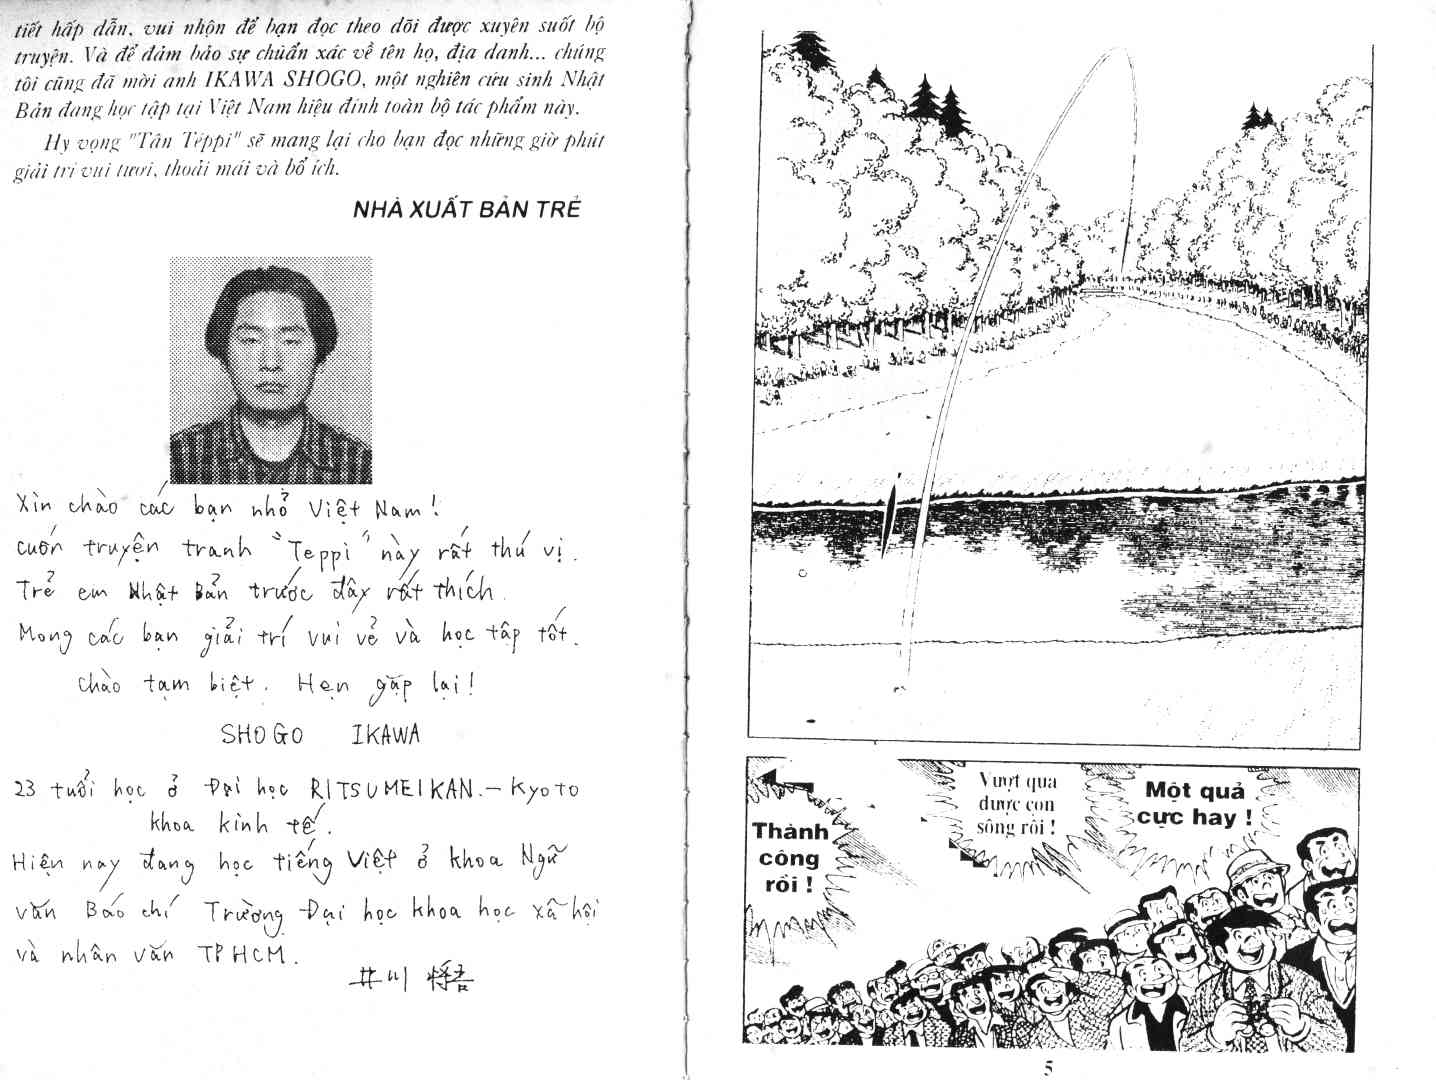 tiết hấp dẫn, vui nhộn để bạn đọc theo dõi được xuyên suốt bộ
truyện. Và để đảm bảo sự chuẩn xác về tên họ, địa danh... chúng
tôi cũng đã mời anh IKAWA SHOGO, một nghiên cứu sinh Nhật
Bản đang học tập tại Việt Nam hiệu đính toàn bộ tác phẩm này.
Hy vọng "Tân Teppi" sẽ mang lại cho bạn đọc những giờ phút
giải trí vui tươi, thoải mái và bổ ích.
NHÀ XUẤT BẢN TRẺ
Xin chào các bạn nhỏ Việt Nam!
cuốn truyện tranh "Teppi" này rất thú vị.
Trẻ em Nhật Bản trước đây rất thích.
Mong các bạn giải trí vui vẻ và học tập tốt.
chào tạm biệt. Hẹn gặp lại!
SHOGO IKAWA
23 tuổi học ở Đại học RITSUMEIKAN.- Kyoto
khoa kinh tế.
Hiện nay đang học tiếng Việt ở khoa Ngữ
văn Báo chí Trường Đại học khoa học xã hội
và nhân văn TPHCM.
井川 将吾
Thành
công
rồi !
Vượt qua
được con
sông rồi !
Một quả
cực hay !
5